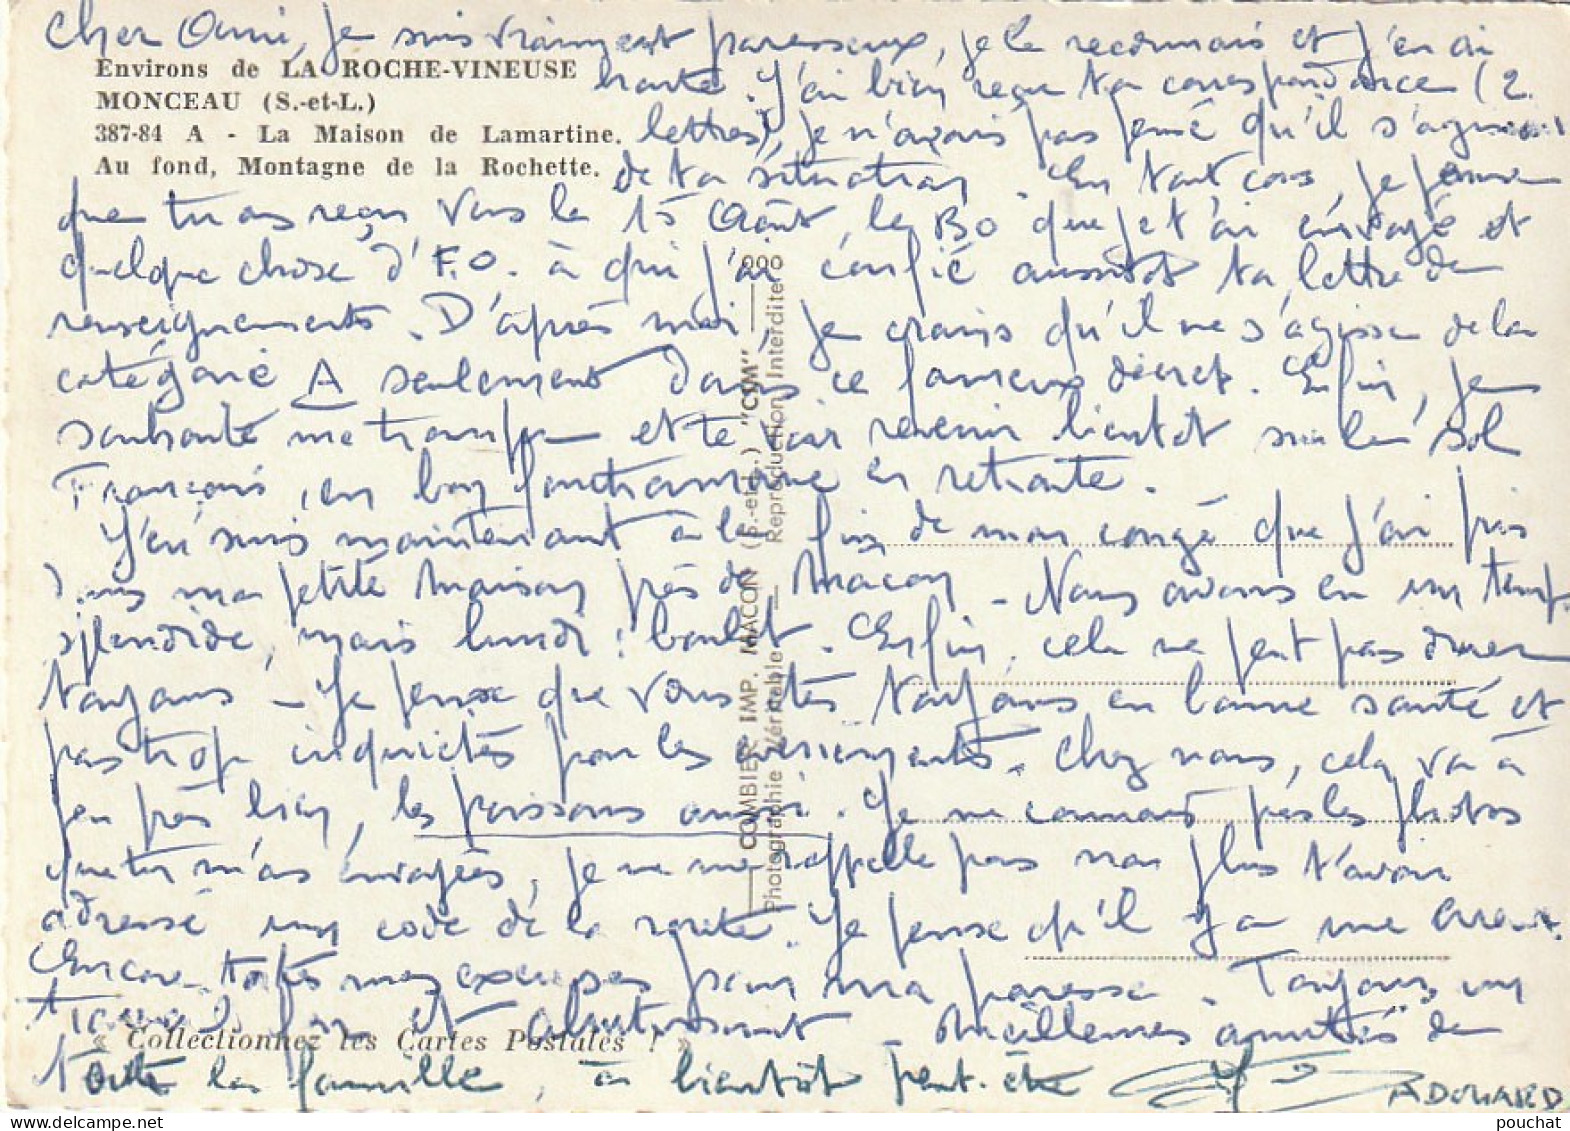 Cher Ami, je suis vraiment paresseux, je le reconnais et j'en ai
honte. J'ai bien reçu ta correspondance (2
lettres), je n'avais pas pensé qu'il s'agissait
de ta situation. En tout cas, je pense
que tu as reçu vers le 15 Août, le BO que je t'ai envoyé et
quelque chose d'F.O. à qui j'ai confié aussitôt ta lettre de
renseignements. D'après moi, je crains qu'il ne s'agisse de la
catégorie A seulement dans ce fameux décret. Enfin, je
souhaite me tromper et te voir revenir bientôt sur le sol
Français, en bon fonctionnaire en retraite.
J'en suis maintenant à la fin de mon congé que j'ai pris
dans ma petite maison près de Macon - Nous avons eu un temps
splendide, mais lundi : boulot. Enfin, cela ne peut pas durer
toujours - Je pense que vous êtes toujours en bonne santé et
pas trop inquiétés par les évènements. Chez nous, cela va à
peu près bien, les poissons aussi. Je ne connais pas les photos
que tu m'as envoyées, je ne me rappelle pas non plus t'avoir
adressé un code de la route. Je pense qu'il y a une erreur.
Encore toutes mes excuses pour ma paresse. Toujours un
travail fou et abrutissant - Meilleures amitiés de
toute la famille, à bientôt peut-être
ADOUARD
Environs de LA ROCHE-VINEUSE
MONCEAU (S.-et-L.)
387-84 A - La Maison de Lamartine.
Au fond, Montagne de la Rochette.
COMBIER IMP. MACON (S.-et-L.) "CSM"
Photographie Véritable — Reproduction Interdite
« Collectionnez les Cartes Postales ! »
pouchat